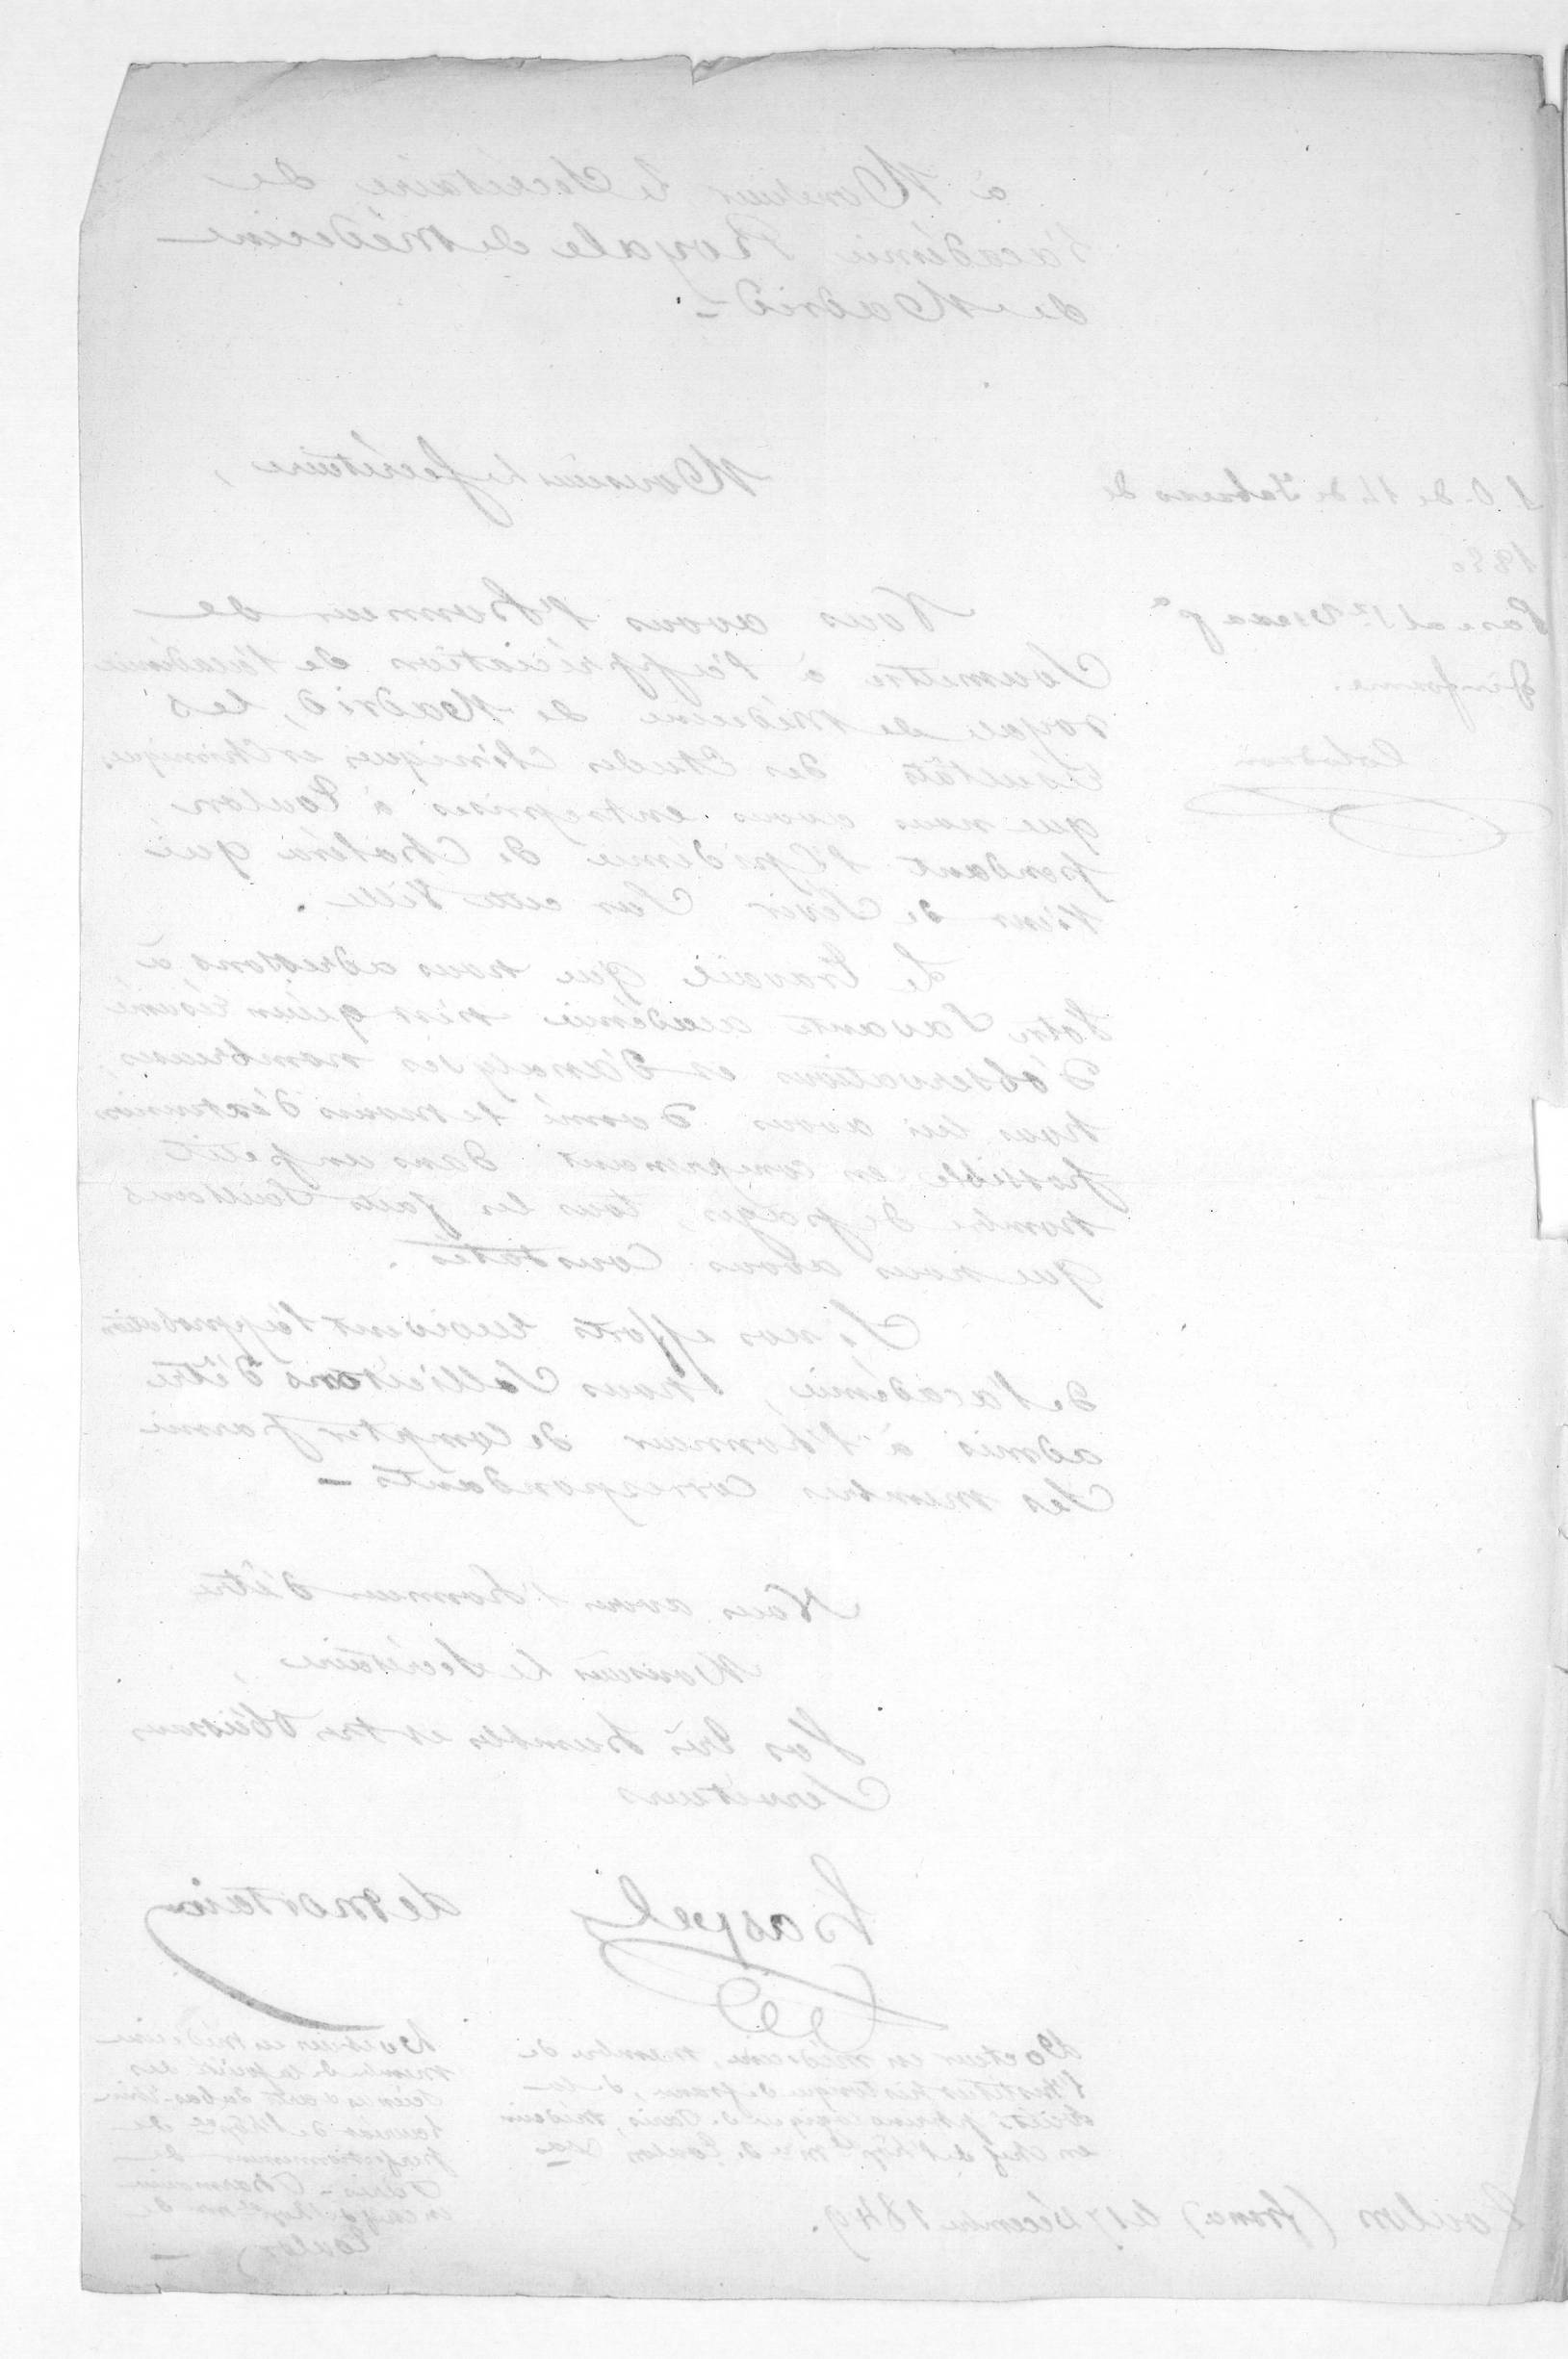 à Monsieur le Secrétaire de
l'académie Royale de Médecine
de Madrid
Monsieur le Secrétaire,
Nous avons l'honneur de
Soumettre à l'appréciation de l'académie
royale de Médecine de Madrid, les
résultats des Etudes Cliniques et Chimiques
que nous avons entreprises à Toulon,
pendant l'Epidémie de Choléra qui
vient de Sévir Sur cette Ville.
Le travail que nous adressons à
Votre Savante académie n'est qu'un résumé
d'observations et d'analyses nombreuses,
nous lui avons donné le moins d'extension
possible en comprimant dans un petit
nombre de pages, tous les faits Saillants
que nous avons Constatés.
Si nos efforts reçoivent l'approbation
de l'académie, nous Sollicitons d'être
admis à l'honneur de compter parmi
Ses membres correspondants
Nous avons l'honneur d'être
Monsieur le Secrétaire,
Vos très humbles et très obéissans
Serviteurs
Haspel demortain
Docteur en médecine, membre de
l'Institut historique de france, de la
Société phrénologique de Paris, Médecin
en chef de l'hôpl mre de Toulon
membre de la société des
perfectionnement de
Paris - Pharmacien
Toulon
Toulon (france) le 17 Décembre 1849.
de 14 de Febrero de
1850
Pase al Sr
informe.